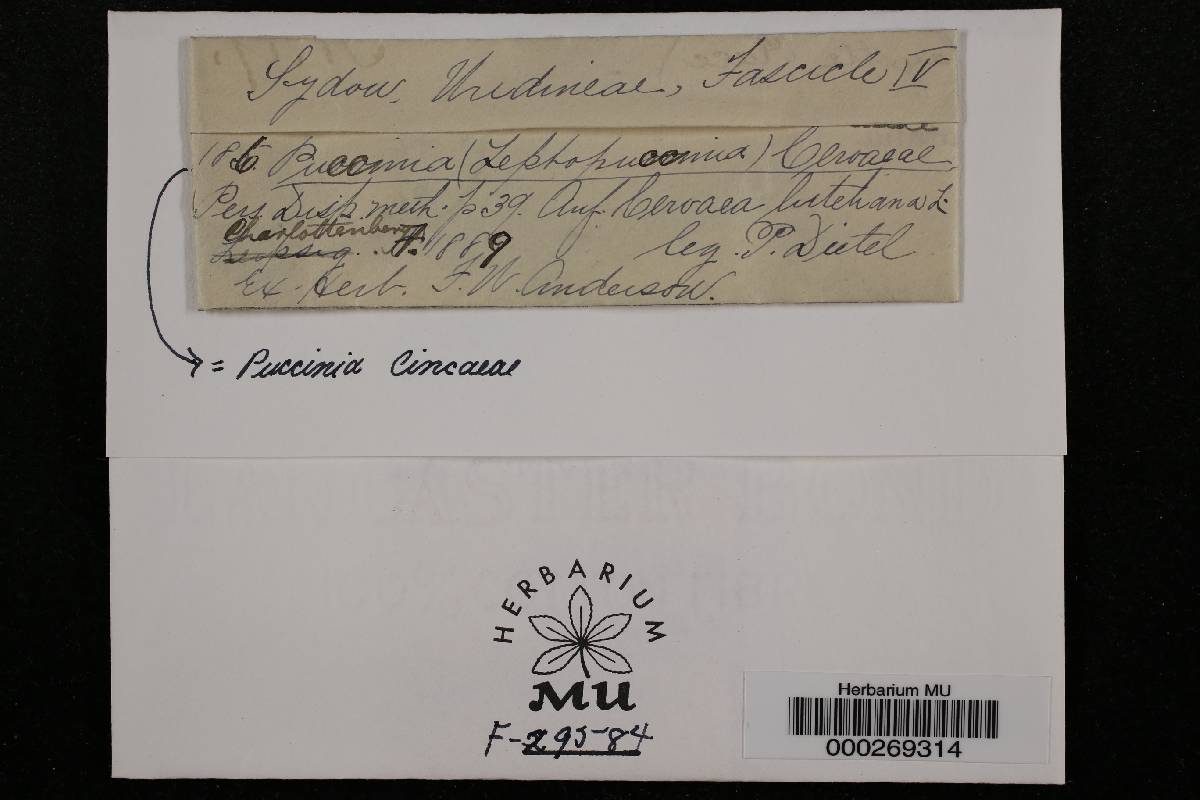 Sydow, Uredineae, Fascicle IV
186. Puccinia (Leptopuccinia) Cercaeae
Pers Disp. meth. p 39. Auf. Cercaea lutetiana L.
Charlottenberg
Leipsig. 1889 leg. P. Dietel
Ex. Herb. F. W. Anderson.
= Puccinia Circaeae
HERBARIUM
MU
F-29584
Herbarium MU
000269314